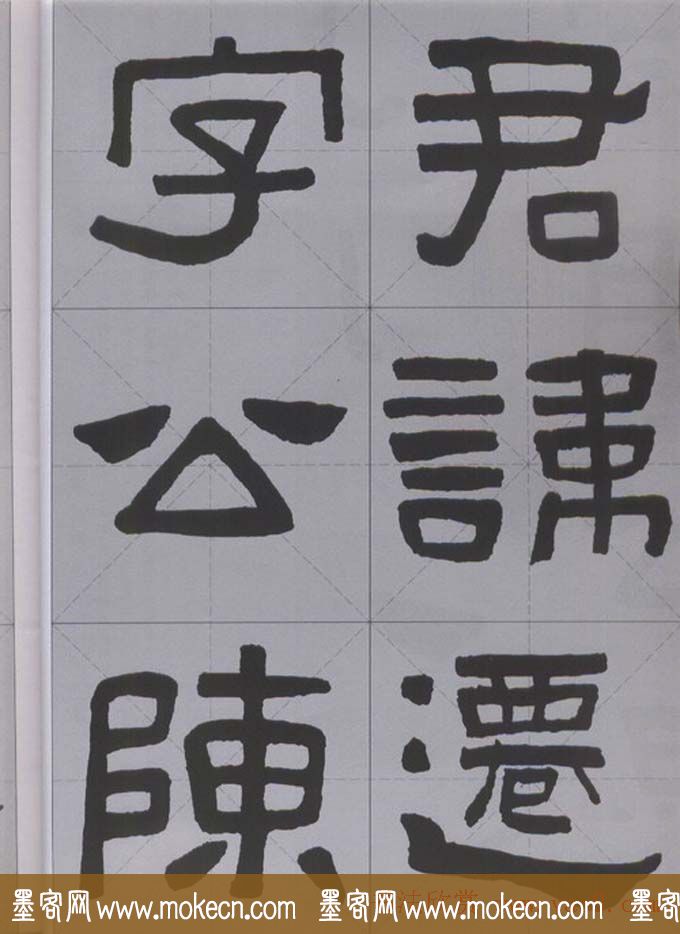 君諱遷
字公陳
墨客网 www.mokecn.com 墨客网 www.mokecn.com 墨客